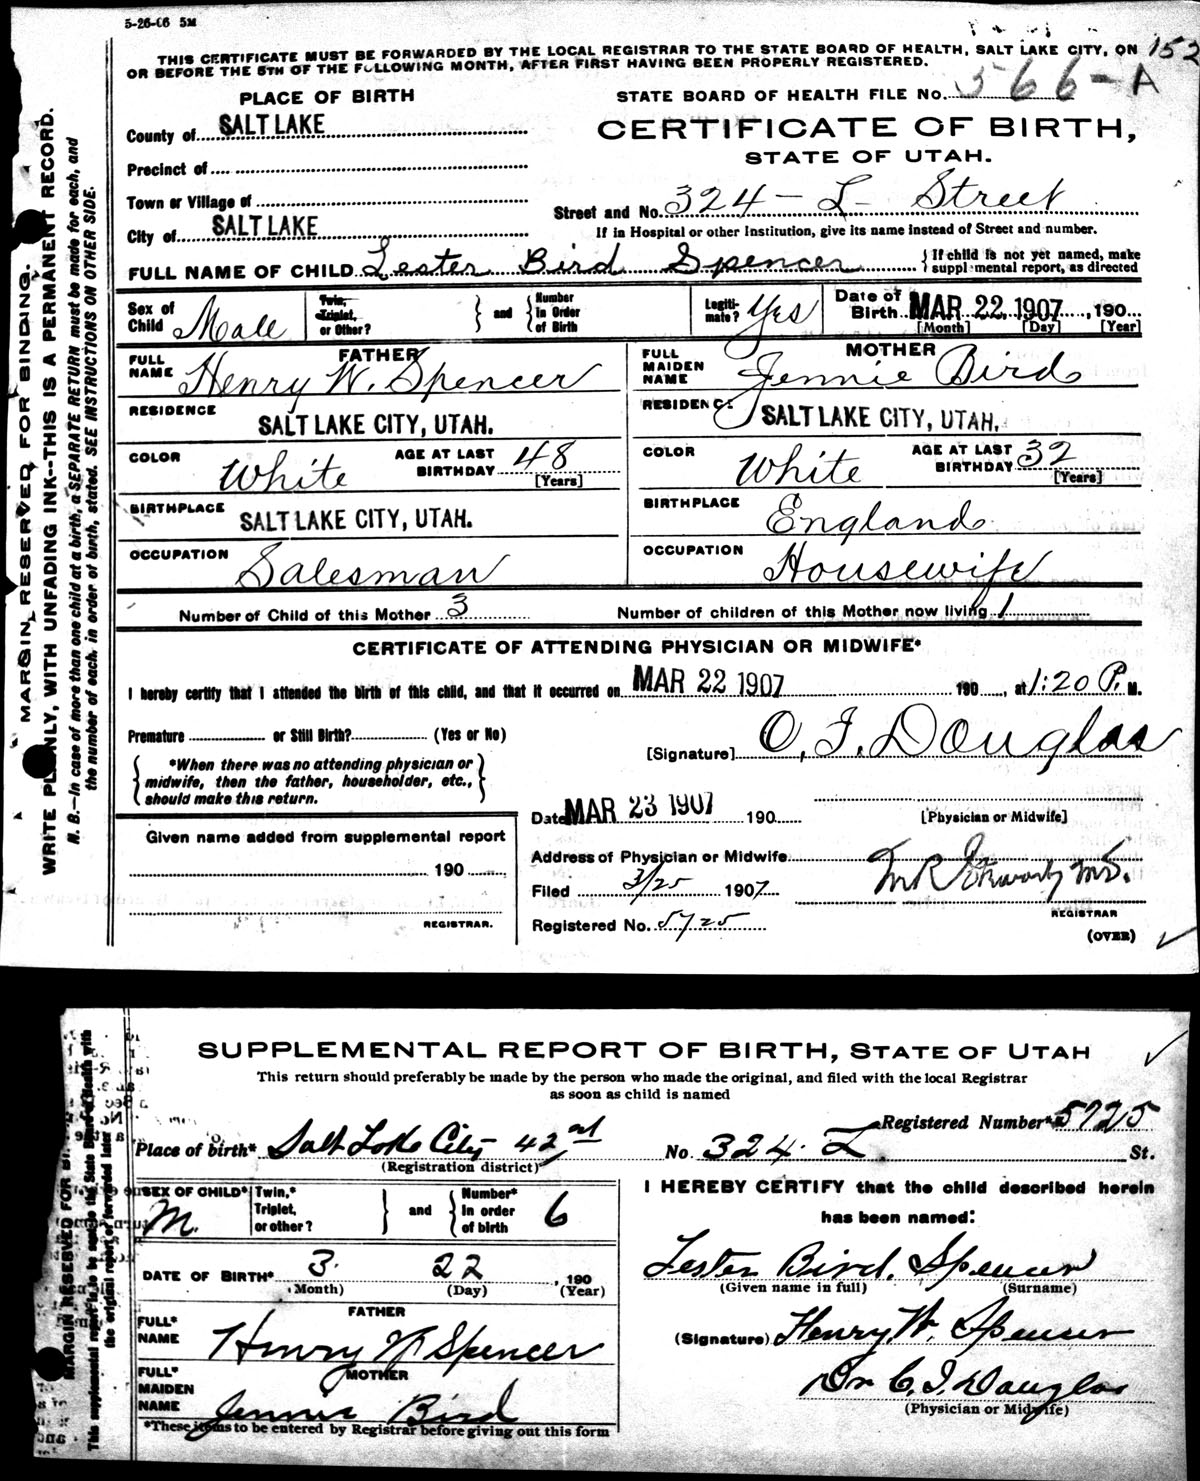 5-26-06 5M
THIS CERTIFICATE MUST BE FORWARDED BY THE LOCAL REGISTRAR TO THE STATE BOARD OF HEALTH, SALT LAKE CITY, ON
OR BEFORE THE 5TH OF THE FOLLOWING MONTH, AFTER FIRST HAVING BEEN PROPERLY REGISTERED.
152
PLACE OF BIRTH
STATE BOARD OF HEALTH FILE NO. 366-A
County of SALT LAKE
CERTIFICATE OF BIRTH,
STATE OF UTAH.
Precinct of
Town or Village of
Street and No. 324 - L - Street
City of SALT LAKE
If in Hospital or other Institution, give its name instead of Street and number.
FULL NAME OF CHILD Lester Bird Spencer { If child is not yet named, make
supplemental report, as directed
Sex of Child Male
Twin, Triplet, or Other? } and { Number In Order of Birth
Legiti-mate? Yes
Date of Birth MAR 22 1907, 190
[Month] [Day] [Year]
FATHER
FULL NAME Henry W. Spencer
MOTHER
FULL MAIDEN NAME Jennie Bird
RESIDENCE SALT LAKE CITY, UTAH.
RESIDENCE SALT LAKE CITY, UTAH.
COLOR White AGE AT LAST BIRTHDAY 48 [Years]
COLOR White AGE AT LAST BIRTHDAY 32 [Years]
BIRTHPLACE SALT LAKE CITY, UTAH.
BIRTHPLACE England
OCCUPATION Salesman
OCCUPATION Housewife
Number of Child of this Mother 3 Number of children of this Mother now living 1
CERTIFICATE OF ATTENDING PHYSICIAN OR MIDWIFE*
I hereby certify that I attended the birth of this child, and that it occurred on MAR 22 1907 190, at 1:20 P. M.
Premature or Still Birth? (Yes or No)
[Signature] O. J. Douglas
{ *When there was no attending physician or
midwife, then the father, householder, etc.,
should make this return. }
Date MAR 23 1907 190
[Physician or Midwife]
Given name added from supplemental report
190
REGISTRAR.
Address of Physician or Midwife
Filed 3/25 1907
M.D.
REGISTRAR
Registered No. 5725
(OVER)
MARGIN RESERVED FOR BINDING.
WRITE PLAINLY, WITH UNFADING INK--THIS IS A PERMANENT RECORD.
N. B.—In case of more than one child at a birth, a SEPARATE RETURN must be made for each, and
the number of each, in order of birth, stated. SEE INSTRUCTIONS ON OTHER SIDE.
SUPPLEMENTAL REPORT OF BIRTH, STATE OF UTAH
This return should preferably be made by the person who made the original, and filed with the local Registrar
as soon as child is named
Registered Number* 5725
Place of birth* Salt Lake City 42nd No. 324 L St.
(Registration district)
SEX OF CHILD* M.
Twin,* Triplet, or other? } and { Number* In order of birth 6
I HEREBY CERTIFY that the child described herein
has been named:
DATE OF BIRTH* 3 22, 190
(Month) (Day) (Year)
Lester Bird, Spencer
(Given name in full) (Surname)
FATHER
FULL* NAME Henry W Spencer
(Signature) Henry W. Spencer
MOTHER
FULL* MAIDEN NAME Jennie Bird
Dr C. J. Douglas
(Physician or Midwife)
*These items to be entered by Registrar before giving out this form
MARGIN RESERVED FOR
This supplemental report is to be sent to the State Board of Health with
the original report or forwarded later